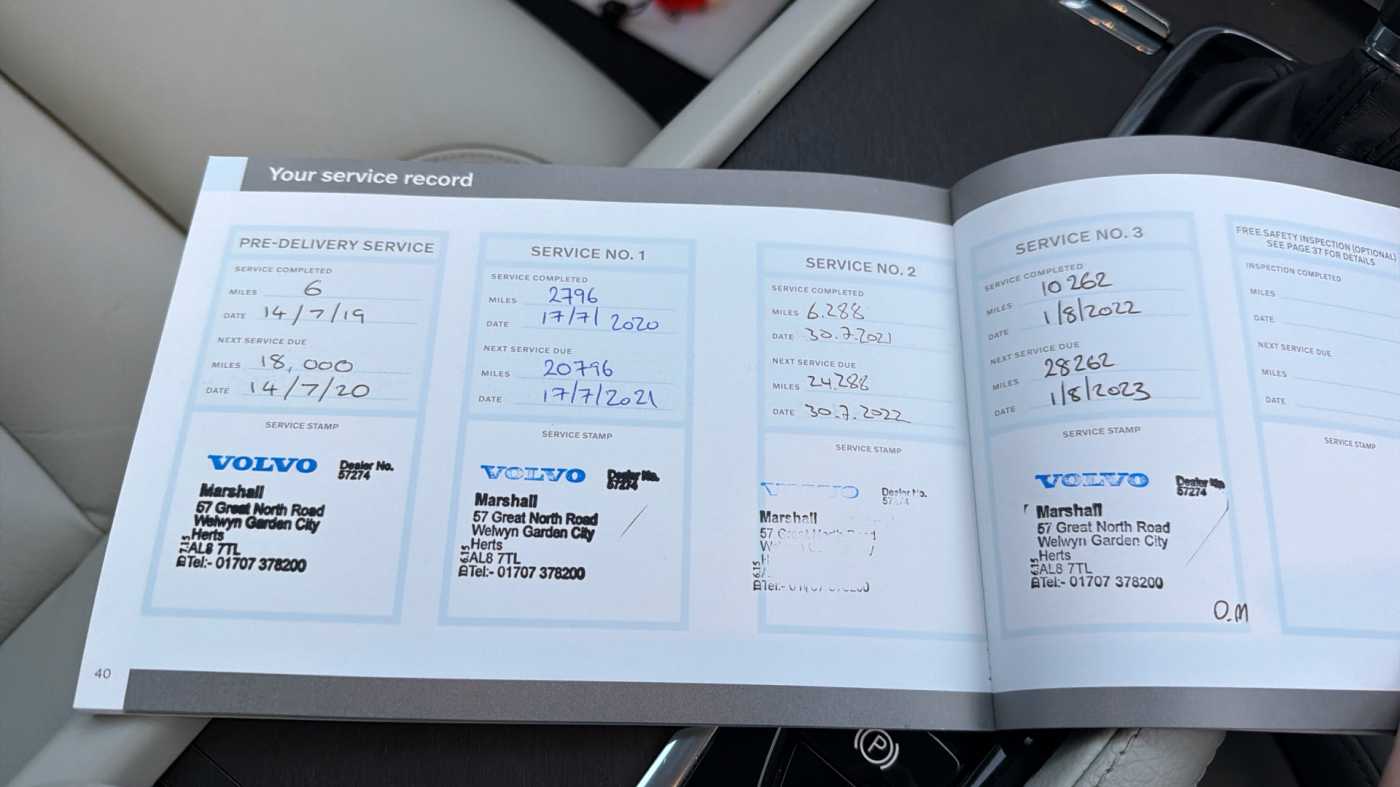 Your service record
PRE-DELIVERY SERVICE
SERVICE COMPLETED
MILES 6
DATE 14/7/19
NEXT SERVICE DUE
MILES 18,000
DATE 14/7/20
SERVICE STAMP
VOLVO Dealer No.
57274
Marshall
57 Great North Road
Welwyn Garden City
Herts
AL8 7TL
Tel:- 01707 378200
SERVICE NO. 1
SERVICE COMPLETED
MILES 2796
DATE 17/7/2020
NEXT SERVICE DUE
MILES 20796
DATE 17/7/2021
SERVICE STAMP
VOLVO Dealer No.
57274
Marshall
57 Great North Road
Welwyn Garden City
Herts
AL8 7TL
Tel:- 01707 378200
SERVICE NO. 2
SERVICE COMPLETED
MILES 6.288
DATE 30.7.2021
NEXT SERVICE DUE
MILES 24.288
DATE 30.7.2022
SERVICE STAMP
VOLVO Dealer No.
Marshall
57
Tel:-
SERVICE NO. 3
SERVICE COMPLETED
MILES 10262
DATE 1/8/2022
NEXT SERVICE DUE
MILES 28262
DATE 1/8/2023
SERVICE STAMP
VOLVO Dealer No.
57274
Marshall
57 Great North Road
Welwyn Garden City
Herts
AL8 7TL
Tel:- 01707 378200
O.M
FREE SAFETY INSPECTION (OPTIONAL)
SEE PAGE 37 FOR DETAILS
INSPECTION COMPLETED
MILES
DATE
NEXT SERVICE DUE
MILES
DATE
SERVICE STAMP
40
P